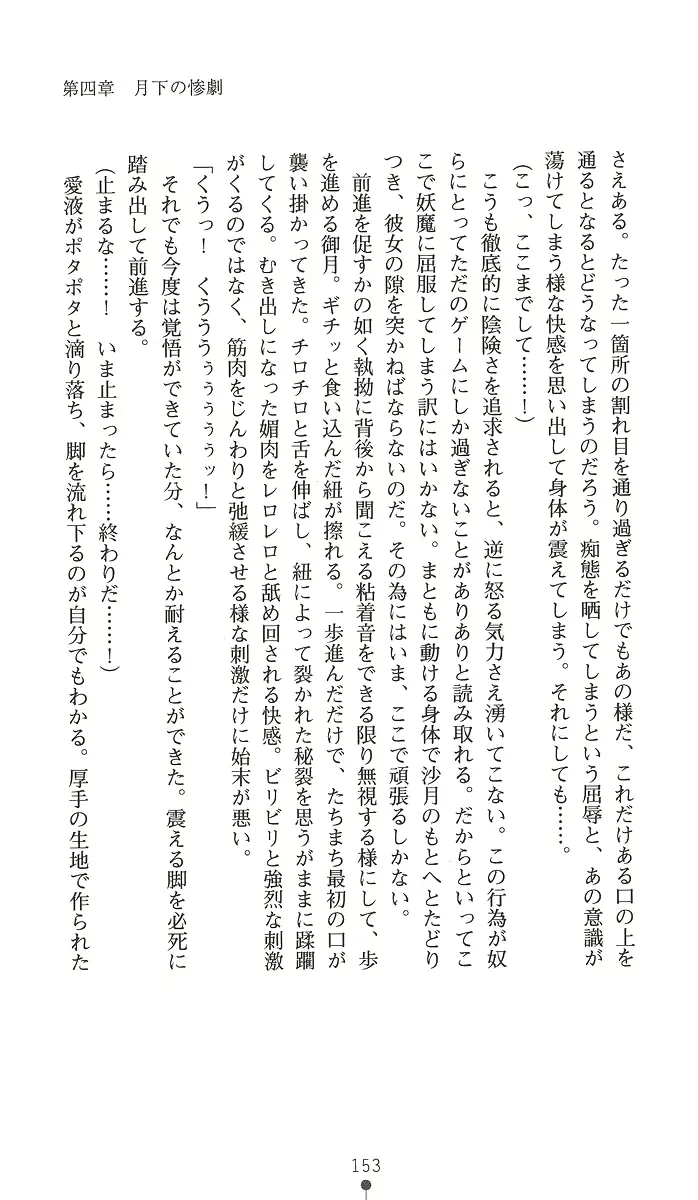 第四章　月下の惨劇
さえある。たった一箇所の割れ目を通り過ぎるだけでもあの様だ、これだけある口の上を
通るとなるとどうなってしまうのだろう。痴態を晒してしまうという屈辱と、あの意識が
蕩けてしまう様な快感を思い出して身体が震えてしまう。それにしても……。
（こっ、ここまでして……！）
　こうも徹底的に陰険さを追求されると、逆に怒る気力さえ湧いてこない。この行為が奴
らにとってただのゲームにしか過ぎないことがありありと読み取れる。だからといってこ
こで妖魔に屈服してしまう訳にはいかない。まともに動ける身体で沙月のもとへとたどり
つき、彼女の隙を突かねばならないのだ。その為にはいま、ここで頑張るしかない。
　前進を促すかの如く執拗に背後から聞こえる粘着音をできる限り無視する様にして、歩
を進める御月。ギチッと食い込んだ紐が擦れる。一歩進んだだけで、たちまち最初の口が
襲い掛かってきた。チロチロと舌を伸ばし、紐によって裂かれた秘裂を思うがままに蹂躙
してくる。むき出しになった媚肉をレロレロと舐め回される快感。ビリビリと強烈な刺激
がくるのではなく、筋肉をじんわりと弛緩させる様な刺激だけに始末が悪い。
「くうっ！　くうううぅぅぅぅッ！」
　それでも今度は覚悟ができていた分、なんとか耐えることができた。震える脚を必死に
踏み出して前進する。
（止まるな……！　いま止まったら……終わりだ……！）
　愛液がポタポタと滴り落ち、脚を流れ下るのが自分でもわかる。厚手の生地で作られた
153